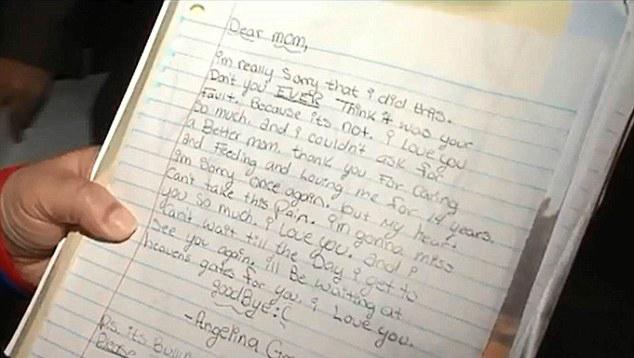 Dear mom,
i'm really sorry that i did this.
Don't you EVER Think it was your
fault. Because its not. i Love you
so much. and i couldn't ask for
a Better mom. thank you For caring
and Feeding and Loving me for 14 years.
i'm sorry once again. but my heart
can't take this pain. i'm gonna miss
you so much. i Love you. and i
can't wait till the Day i get to
see you again. i'll Be waiting at
heavens gates for you. i Love you.
goodBye :(
-Angelina
Ps. its
Please